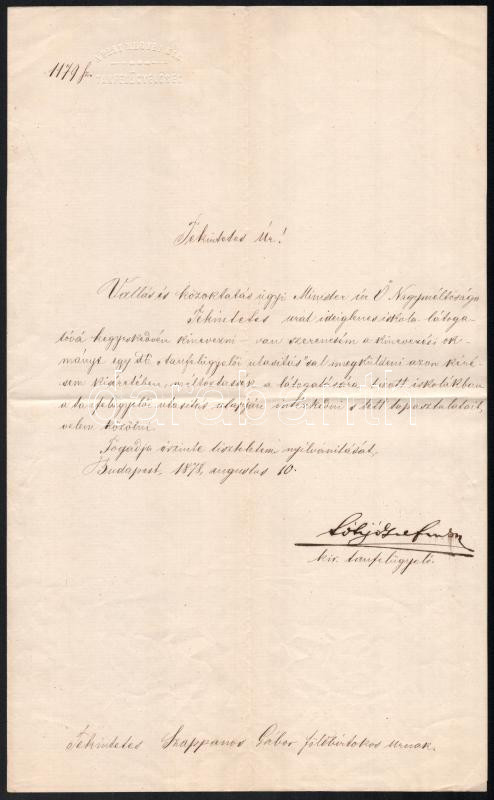 PEST MEGYEI KIR.
TANFELÜGYELŐSÉG
1179 sz.
Tekintetes Úr!
Vallás és közoktatás ügyi Minister úr Ő Nagyméltósága
Tekintetes urat ideiglenes iskola látoga-
tóvá kegyeskedvén kinevezni – van szerencsém a kinevezési ok-
mányt egy db „tanfelügyelői utasítás"sal megküldeni azon kéré-
sem kíséretében, méltóztassék a látogatására bízott iskolákban
a tanfelügyelői utasítás alapján intézkedni s tett tapasztalatait,
velem közölni.
Fogadja őszinte tiszteletem nyilvánítását,
Budapest, 1878, augustus 10.
kir. tanfelügyelő.
Tekintetes Szappanos Gábor földbirtokos urnak.
darabanth